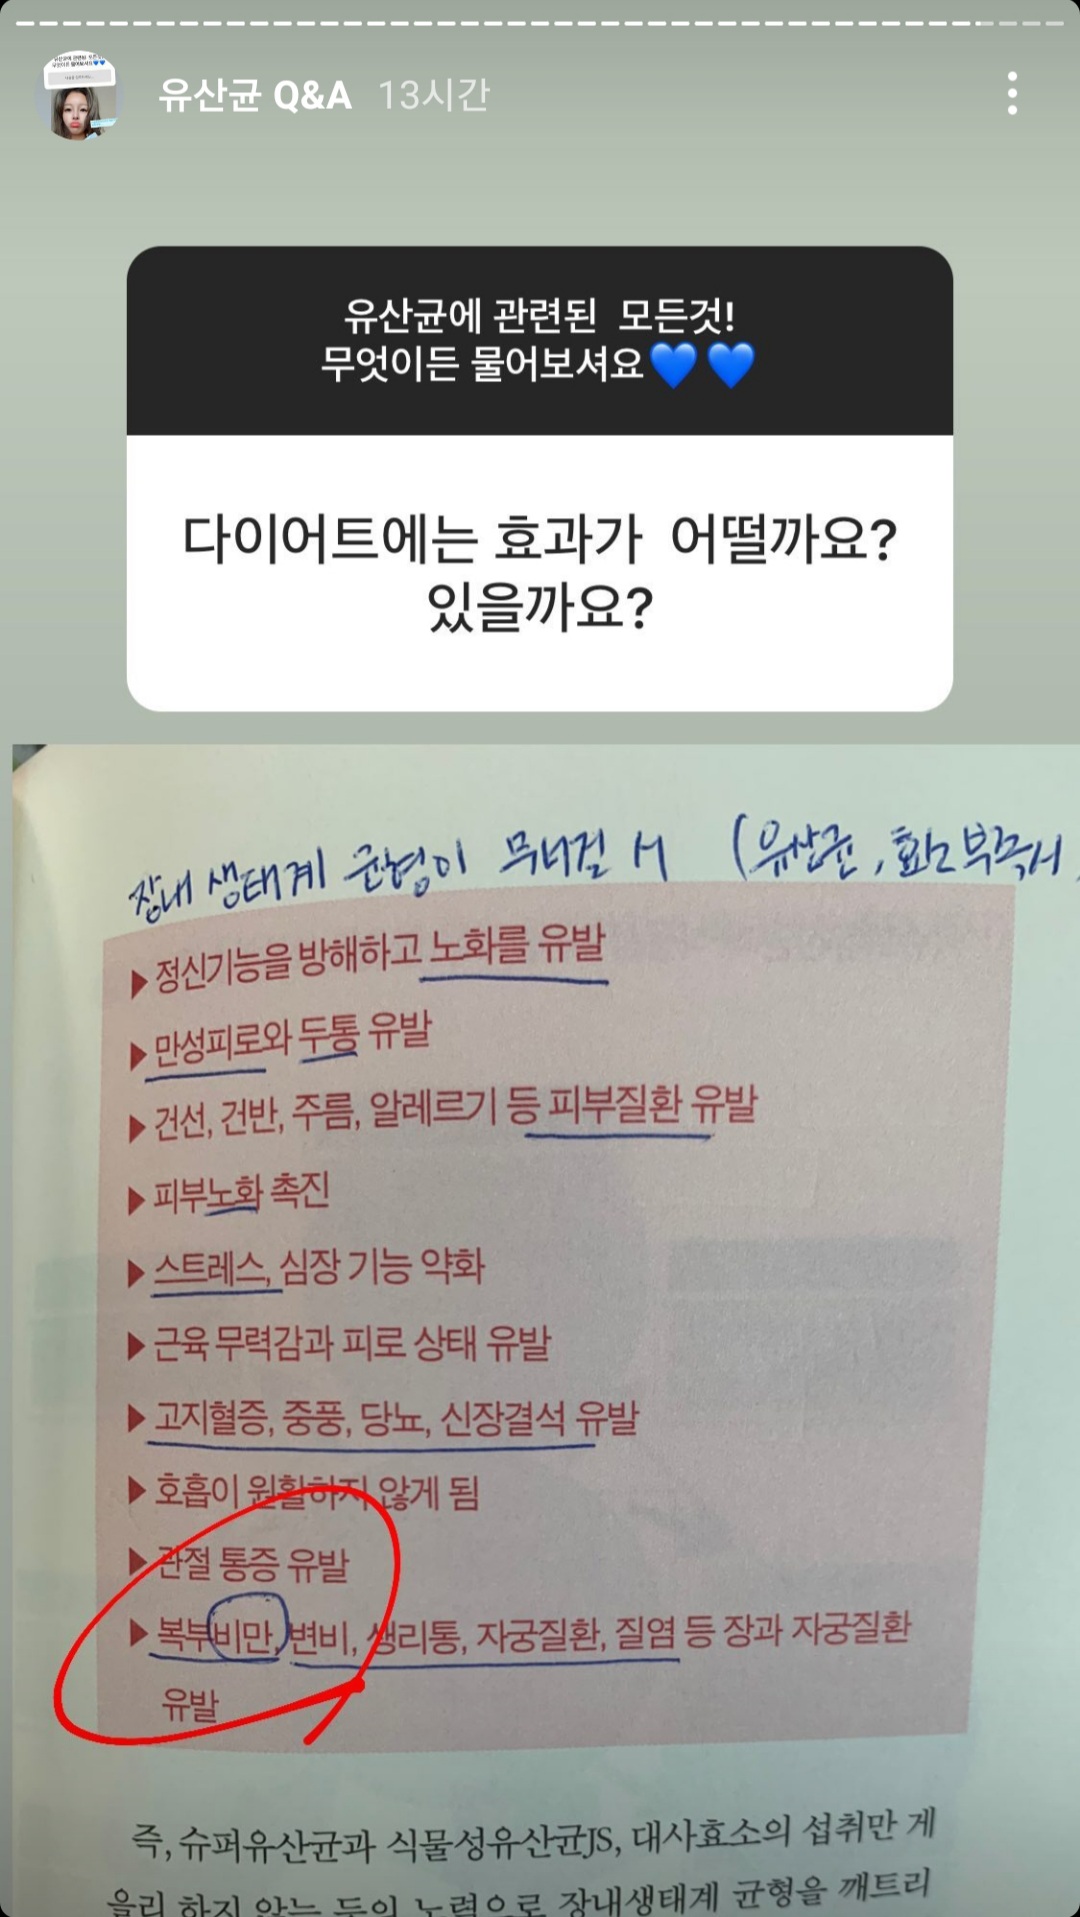 유산균 Q&A 13시간
유산균에 관련된 모든것!
무엇이든 물어보셔요💙💙
다이어트에는 효과가 어떨까요?
있을까요?
장내 생태계 균형이 무너질 시 (유산균, 효소 부족시
▶정신기능을 방해하고 노화를 유발
▶만성피로와 두통 유발
▶건선, 건반, 주름, 알레르기 등 피부질환 유발
▶피부노화 촉진
▶스트레스, 심장 기능 약화
▶근육 무력감과 피로 상태 유발
▶고지혈증, 중풍, 당뇨, 신장결석 유발
▶호흡이 원활하지 않게 됨
▶관절 통증 유발
▶복부비만, 변비, 생리통, 자궁질환, 질염 등 장과 자궁질환
유발
즉, 슈퍼유산균과 식물성유산균JS, 대사효소의 섭취만 게
을리 하지 않는 등의 노력으로 장내생태계 균형을 깨트리